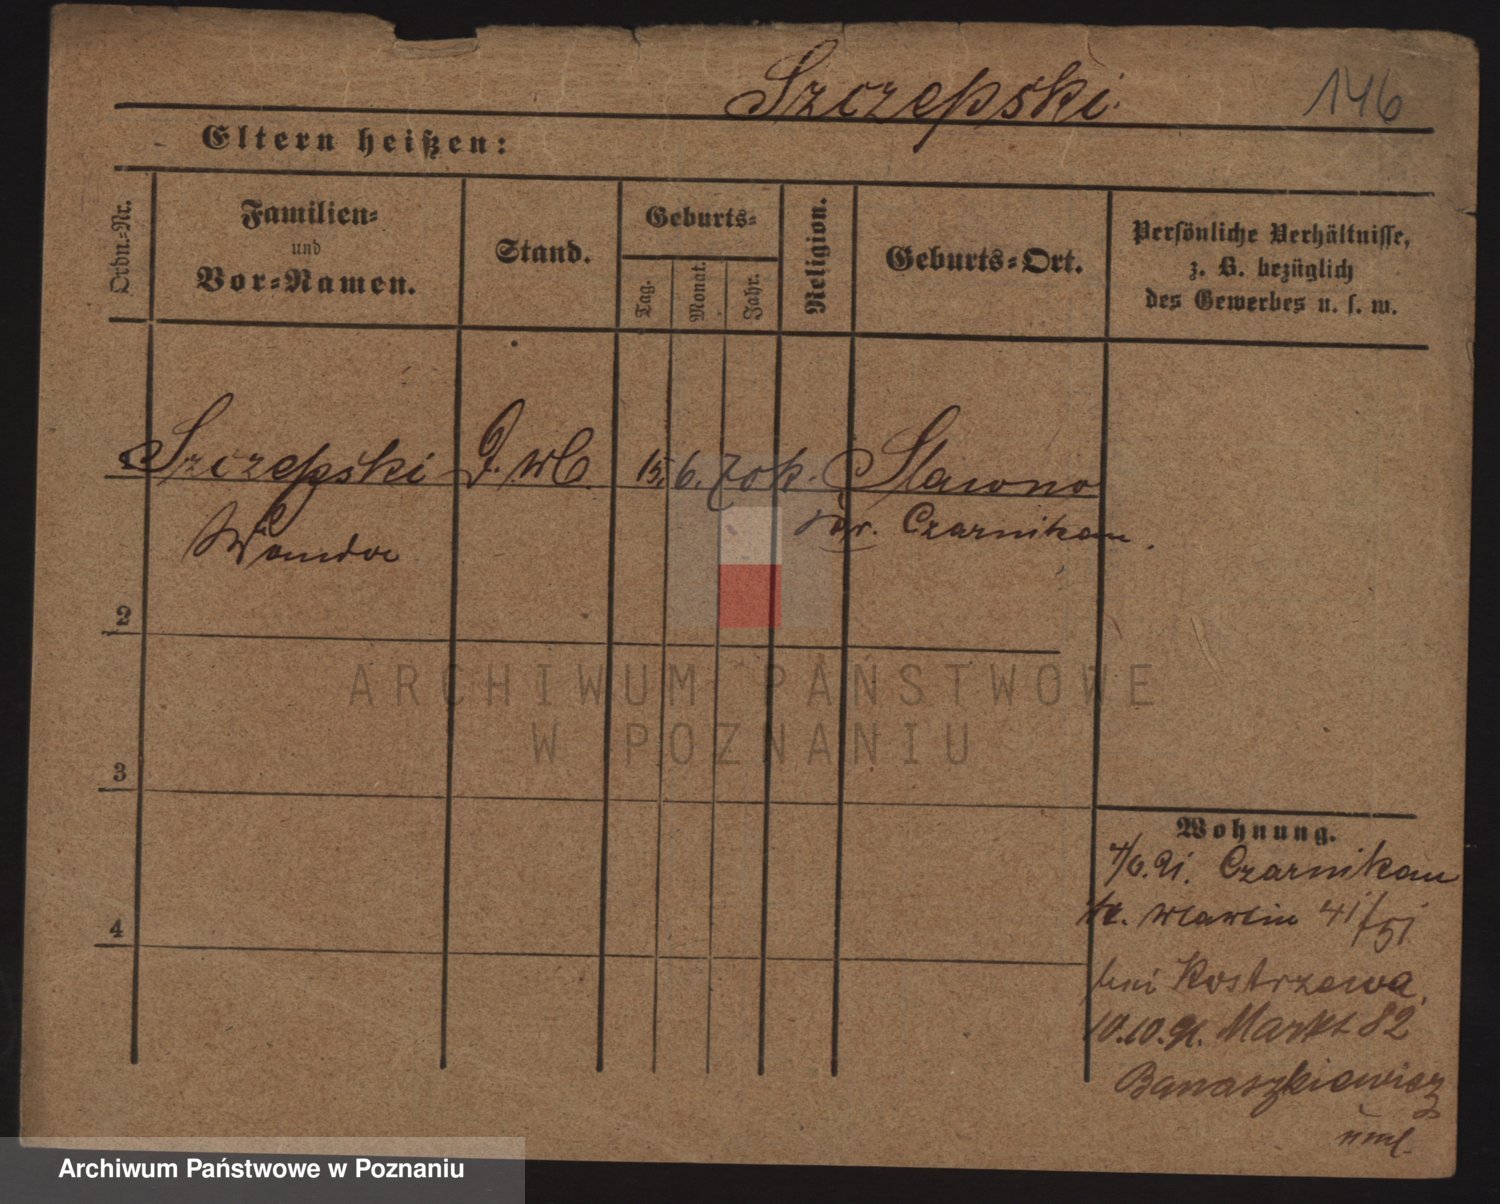 Szczepski.
146
Eltern heißen:
Ordn.-Nr.
Familien-
und
Vor-Namen.
Stand.
Geburts-
Tag.
Monat.
Jahr.
Religion.
Geburts-Ort.
Persönliche Verhältnisse,
z. B. bezüglich
des Gewerbes u. s. w.
Szczepski 15. 6. 70 k. Slawno
Wanda Kr. Czarnikau.
2
3
4
Wohnung.
Czarnikau
41/51
bei Kostrzewa,
10.10.91. Markt 82
Banaszkiewicz
ARCHIWUM PAŃSTWOWE
W POZNANIU
Archiwum Państwowe w Poznaniu